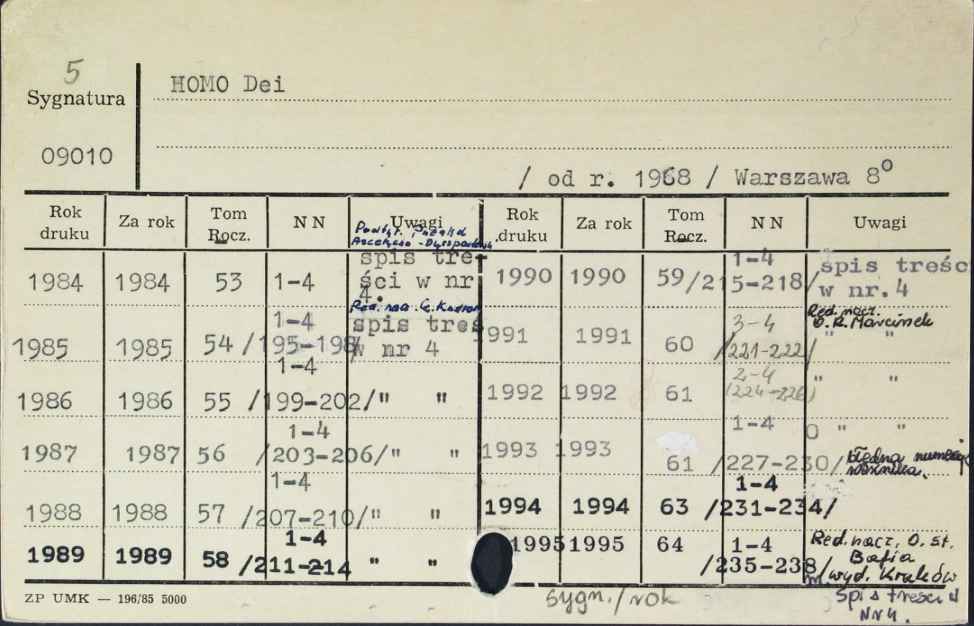 5
Sygnatura HOMO Dei
09010
/ od r. 1968 / Warszawa 8°
Rok druku Za rok Tom Rocz. N N Uwagi Rok druku Za rok Tom Rocz. N N Uwagi
1984 1984 53 1-4 spis treści w nr 4.
1985 1985 54 1-4 /195-198/ spis treś w nr 4
1986 1986 55 1-4 /199-202/ " "
1987 1987 56 1-4 /203-206/ " "
1988 1988 57 1-4 /207-210/ " "
1989 1989 58 1-4 /211-214 " "
1990 1990 59 1-4 /215-218/ spis treśc w nr.4
1991 1991 60 3-4 /221-222/ Red. nacz. O. R. Marcinek " "
1992 1992 61 2-4 /224-226/ " "
1993 1993 61 1-4 /227-230/ O " " błędna
1994 1994 63 1-4 /231-234/
1995 1995 64 1-4 /235-238/ Red. nacz. O. St. Bafia
m. wyd. Kraków
Spis treści w
Nr 4.
ZP UMK — 196/85 5000
sygn./rok